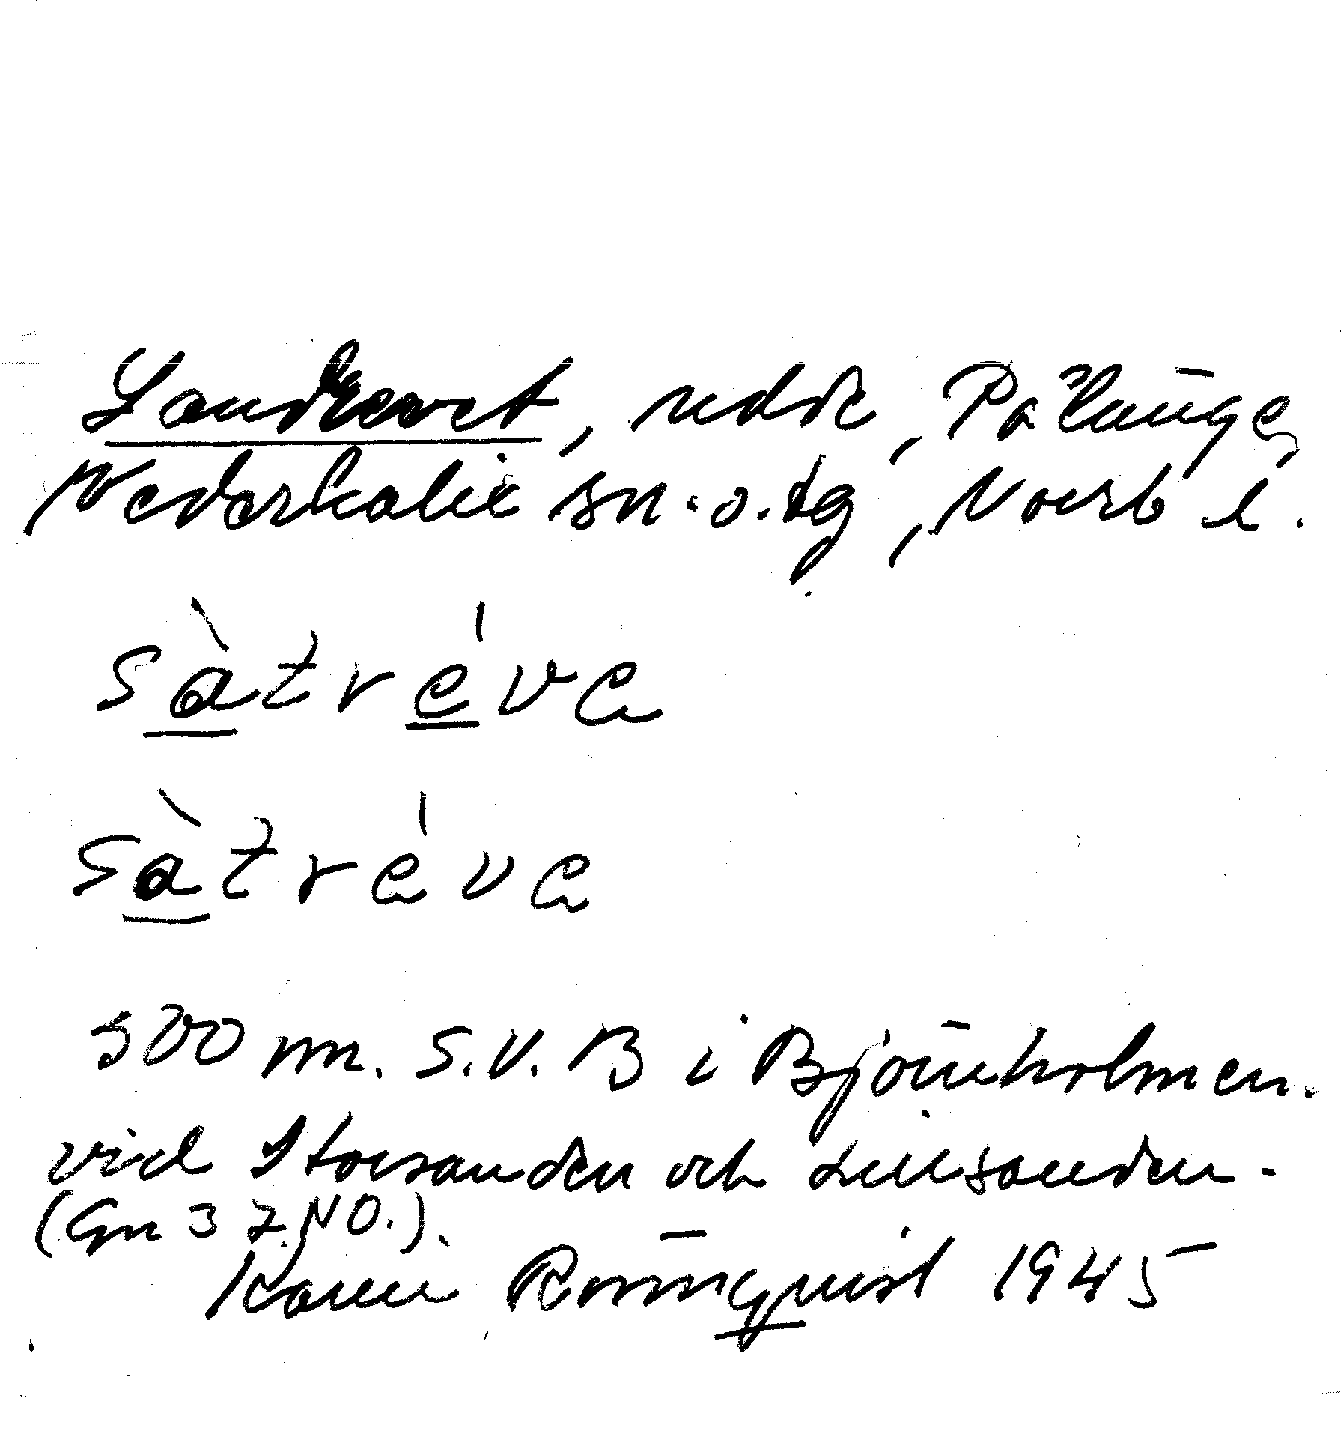 Sandrevet, udde, Pålänge,
Nederkalix sn. o. tg, Norrb l.
sàtréve
sàtréve
300 m. S.V. B i Björnholmen.
vid Storsanden och Lillsanden.
(Gn 3 7. NO.).
Karin Rönnquist 1945